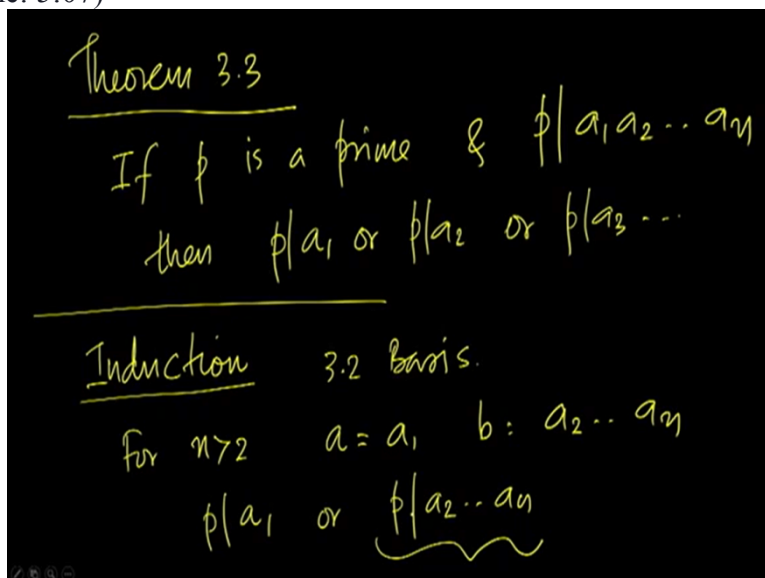 Theorem 3.3
If p is a prime & p|a₁a₂..aₙ
then p|a₁ or p|a₂ or p|a₃...
Induction 3.2 Basis.
For n>2 a=a₁ b: a₂..aₙ
p|a₁ or p|a₂..aₙ